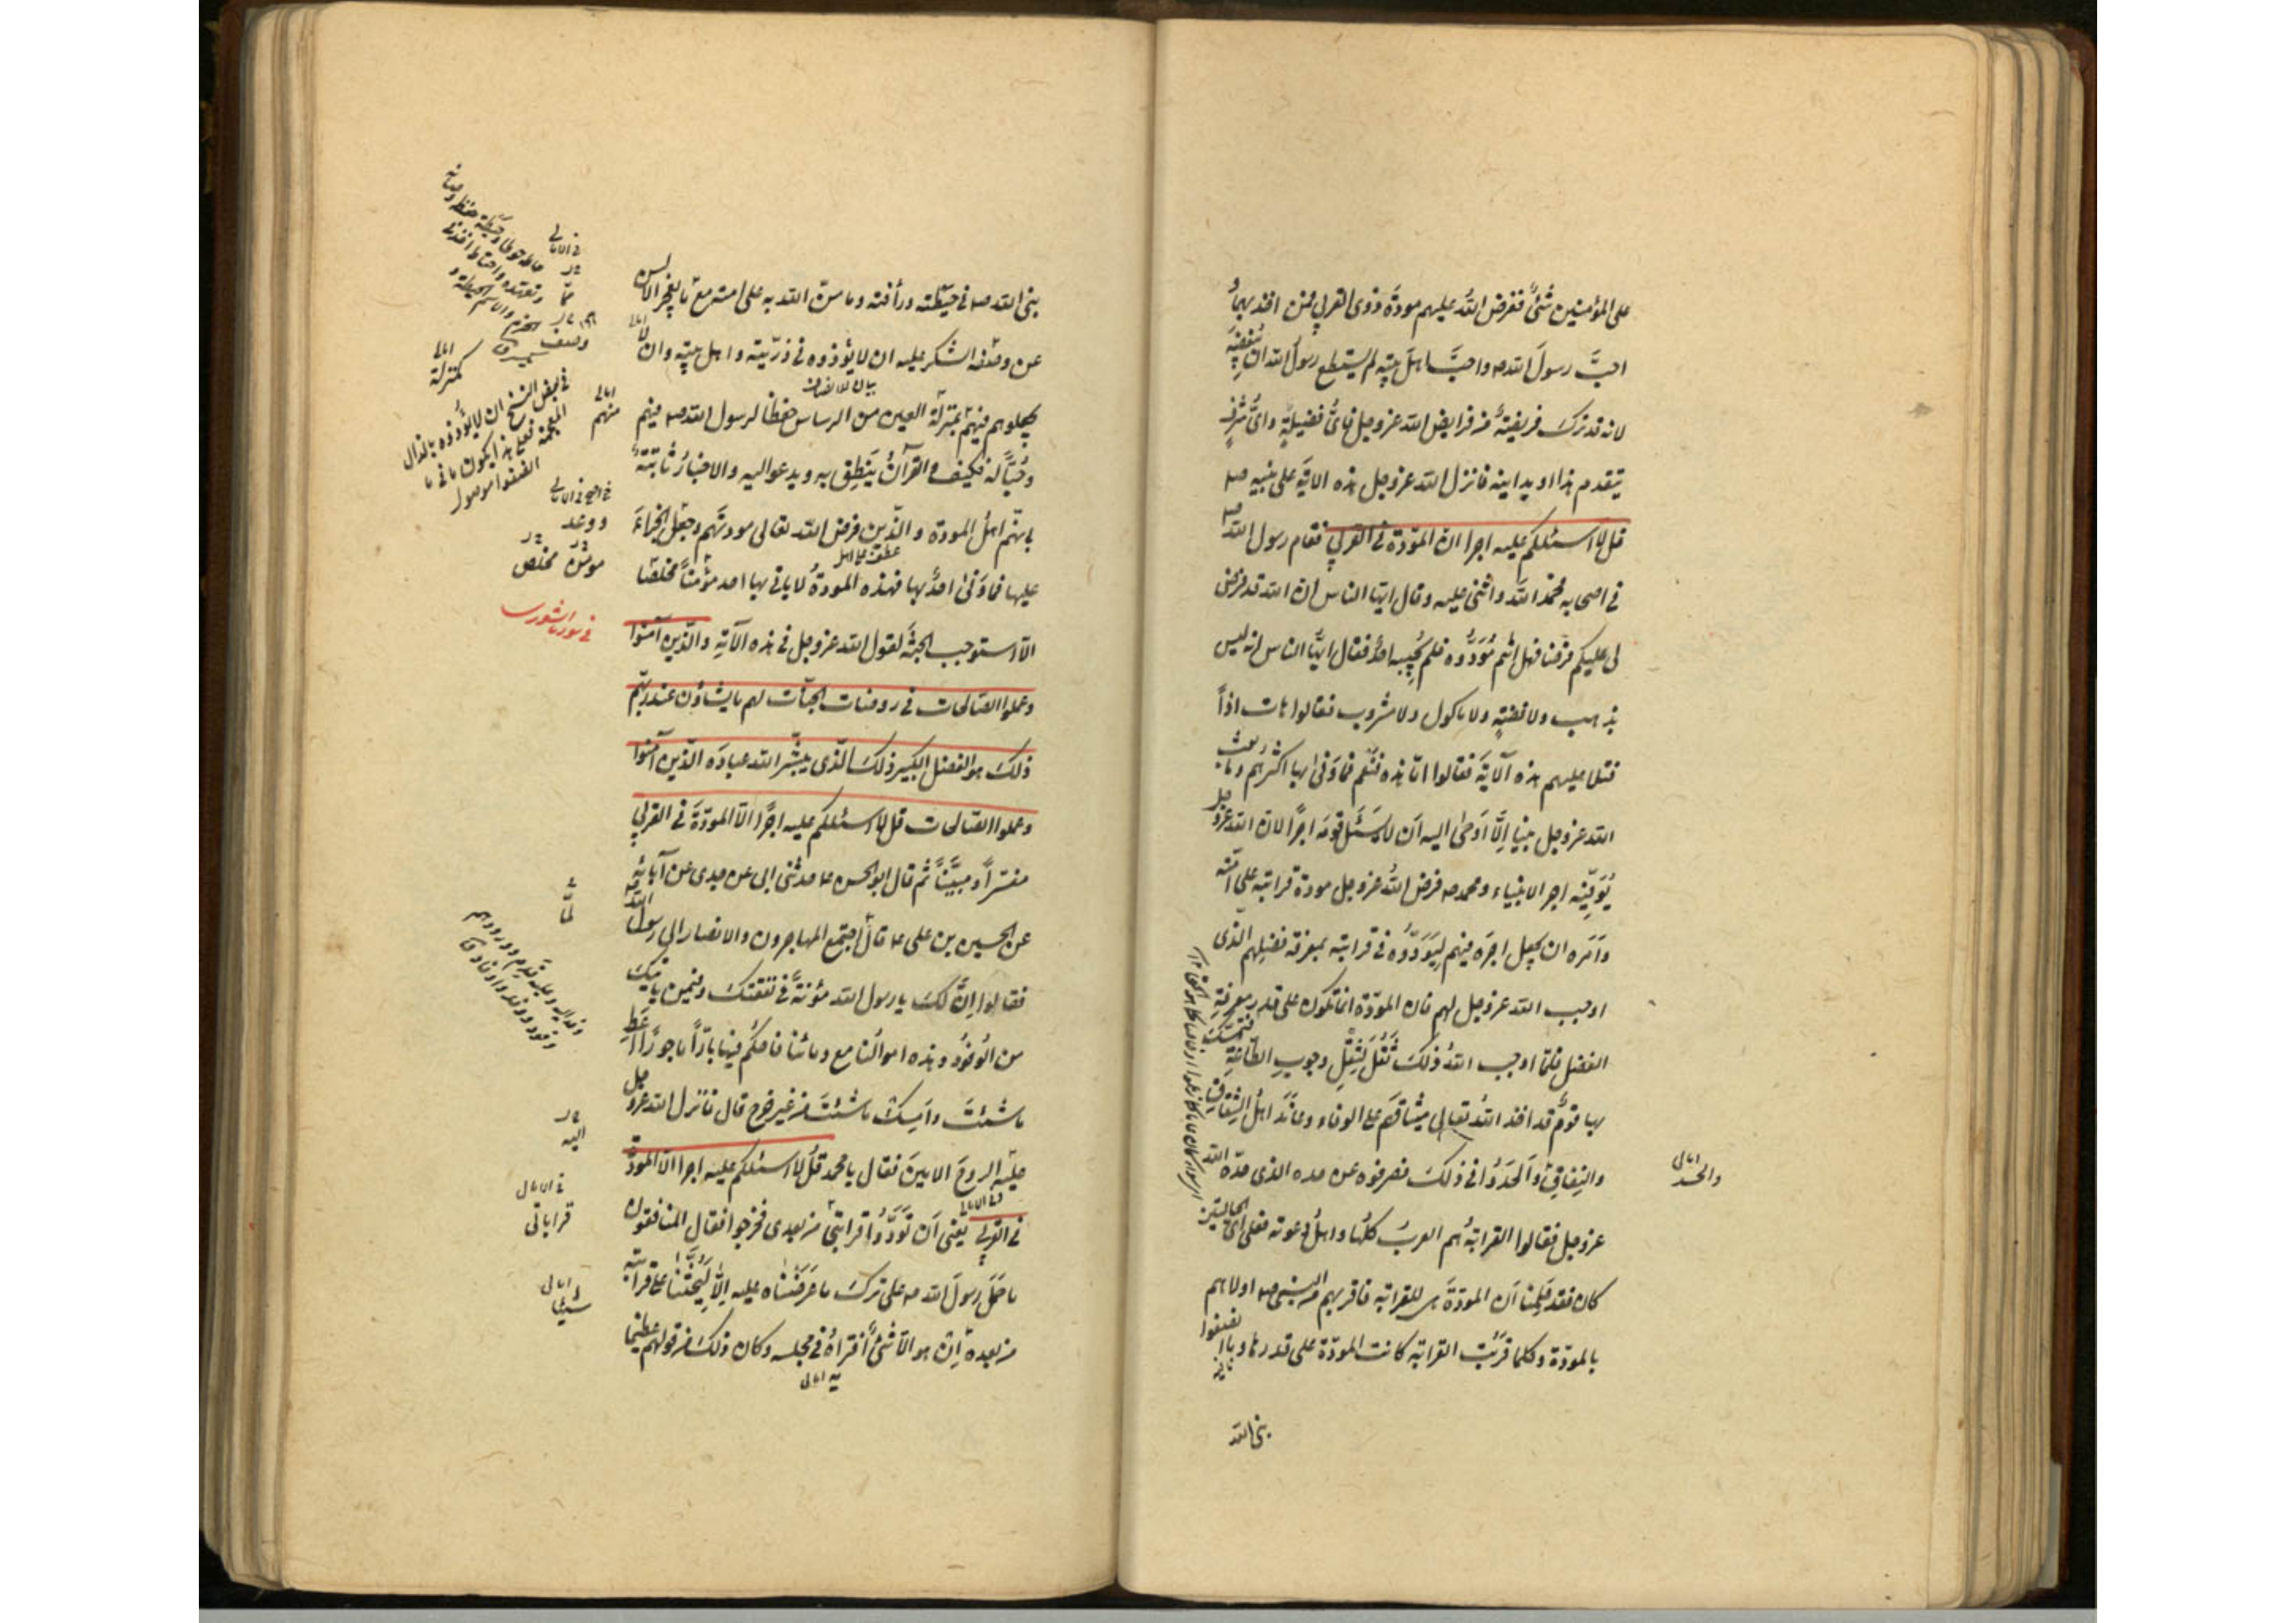 على المؤمنين شيئ ففرض الله عليهم مودة ذوى القربى فمن اخذ بها و
احبَّ رسولَ الله ص واحبَّ اهلَ بيته لم يستطع رسول الله ان يُبغضَه
لانه قد ترك فريضة من فرايض الله عز وجل فاىُّ فضيلةٍ واىُّ شرفٍ
يتقدم هذا او يدانيه فانزل الله عز وجل هذه الايةَ على نبيه ص
قل لا اسئلكم عليه اجرا الا المودة في القربى فقام رسول الله ص
في اصحابه فحمد الله واثنى عليه وقال ايها الناس ان الله قد فرض
لى عليكم فرضا فهل انتم مُؤدُّوه فلم يُجِبه احدٌ فقال ايُّها الناس انه ليس
بذهب ولا فضةٍ ولا ماكول ولا مشروب فقالوا هات اذاً
فتلا عليهم هذه الآيةَ فقالوا امّا هذه فنَعَم فما وَفىٰ بها اكثرهم وما بعث
الله عز وجل نبيا اِلَّا اَوحىٰ اليه اَن لا يسئل قومَه اجرًا لان الله عز وجل
يُوَفِّيه اجر الانبياء ومحمد ص فرض اللهُ عز وجل مودة قرابته على امّته
واَمَره ان يجعل اجرَه فيهم لِيَوَدُّوه في قرابته بمعرفة فضلِهم الّذى
اوجب الله عز وجل لهم فان المودّة انما تكون على قدر معرفةِ
الفضل فلمّا اوجب اللهُ ذلكَ ثَقُلَ لِثِقْلِ وجوبِ الطّاعةِ فتمسّك
بها قومٌ قد اخذ اللهُ تعالى ميثاقَهم على الوفاء وعاند اهلُ الشقاقِ
والنِفاقِ واَلحَدوُا في ذلكَ فصرفوه عن حده الذى حدّه الله
والحسد امالى
عز وجل فقالوا القرابةُ هم العربُ كلُّها واهلُ دعوته فعلى اىّ الحالتين
كان فقد عَلِمنا اَن المودّةَ هى للقرابة فاقربهم من النبى ص اولاهم
بالمودّة وكلما قَرُبت القرابة كانت المودّة على قدرها وما انصفوا
نبى الله
نبى الله ص في حِيطته ورأفته وما منّ الله به على امته مما تعجز الالسن
عن وصف الشكر عليه ان لا يؤذوه في ذرّيته واهل بيته وان لا
يجعلوهم فيهم بمنزلة العين من الراس حفظا لرسول الله ص فيهم
وحُبّاً له فكيف والقرآنُ يَنطِق به ويدعوا اليه والاخبارُ ثابتةٌ
بانّهم اهلُ المودة والّذين فرض الله تعالى مودتَهم ووعد الجزاءَ
عليها فما وَفىٰ احدٌ بها فهذه المودةُ لا ياتى بها احد مؤمناً مخلصًا
الّا استوجب الجنّةَ لقول الله عز وجل في هذه الآيةِ والّذين آمنوا
وعملوا الصّالحات في روضات الجنّات لهم ما يشاؤن عند ربّهم
ذلك هو الفضل الكبير ذلكَ الّذى يبشّر الله عبادَه الّذين آمنوا
وعملوا الصّالحات قل لا اسئلكم عليه اجرًا الّا المودّةَ في القربى
مفسّراً ومبيَّناً ثم قال ابو الحسن ع حدثنى ابى عن جدى عن آبائه
عن الحسين بن على ع قال اجتمع المهاجرون والانصار الى رسول الله
فقالوا اِنَّ لكَ يا رسول الله مؤنةً في نفقتك وفيمن ياتيك
من الوُفُود وهذه اموالُنا مع دمائنا فاحكُم فيها بارّاً ماجورًا اَعطِ
ما شئتَ واَمسِك ما شئتَ من غير حَرج قال فانزل الله عز وجل
عليه الروحَ الامينَ فقال يا محمد قُل لا اسئلكم عليه اجرا الا المودّة
في القربى يعنى اَن تَوَدُّوا قرابتى من بعدى فخرجوا فقال المنافقون
ما حَمَلَ رسولَ الله ص على ترك ما عَرَضناه عليه اِلّا لِيَحُثَّنا على قرابته
من بعده اِن هو الّا شئٌ افتراهُ في مجلسه وكان ذلك من قولهم عظيما
في الامالى
امالى
منهم
مخلص
في سورة الشورى
لمّا
اليه
في الامالى
قراباتى
امالى
شيئا
به امالى